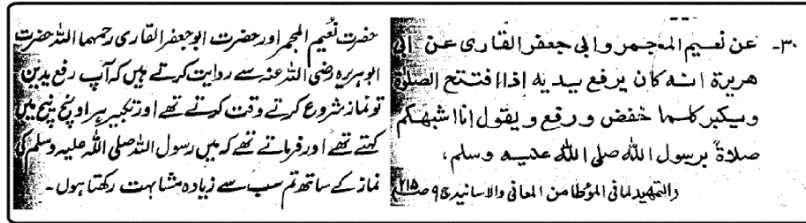 ۳۰۔ عن نعیم المجمر وابی جعفر القاری عن ابی
ھریرۃ انہ کان یرفع یدیہ اذا افتتح الصلاۃ
ویکبر کلما خفض ورفع ویقول انا اشبھکم
صلاۃً برسول اللہ صلی اللہ علیہ وسلم،
(التمھید لما فی المؤطا من المعانی والاسانید ج۹ ص۲۱۵)
حضرت نعیم المجمر اور حضرت ابو جعفر القاری رحمہما اللہ حضرت
ابو ہریرہ رضی اللہ عنہ سے روایت کرتے ہیں کہ آپ رفع یدین
تو نماز شروع کرتے وقت کرتے تھے اور تکبیر ہر اونچ نیچ میں
کہتے تھے اور فرماتے تھے کہ میں رسول اللہ صلی اللہ علیہ وسلم کی
نماز کے ساتھ تم سب سے زیادہ مشابہت رکھتا ہوں۔